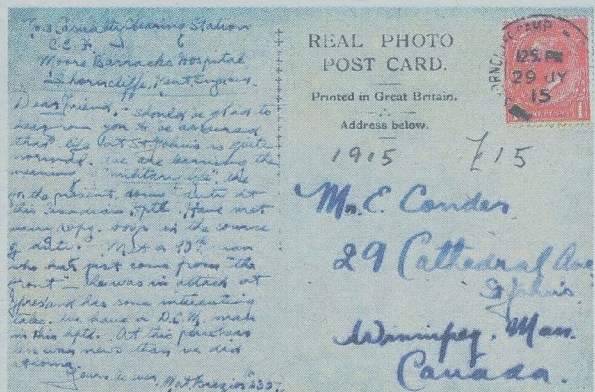 No 3 Casualty Clearing Station
C.E.F.
Moore Barracks Hospital
Shorncliffe, Kent, England.
Dear friend, should be glad to
hear from you to be assured
that life at St John's is quite
normal. We are learning the
meaning "military life". We
for the present doing duty at
this hptl. Have met
many in the course
of duty. Met a man
who has just come from "the
front" he was in attack at
Ypres and has some interesting
tales. We have a D.C.M. man
in this hptl. At this
news than we did
Yours
REAL PHOTO
POST CARD.
Printed in Great Britain.
Address below.
1915 £15
Mr. E. Conder
29 Cathedral Ave
St John's
Winnipeg, Man.
Canada.
29 JY
15